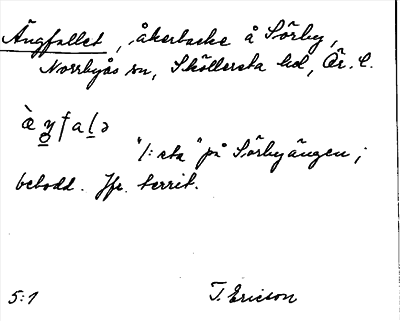 Ängfallet, åkerbacke å Sörby,
Norrbyås sn, Sköllersta hd, Ör. l.
"1:sta" på Sörbyängen;
betodd. Jfr. territ.
5:1 T. Ericson